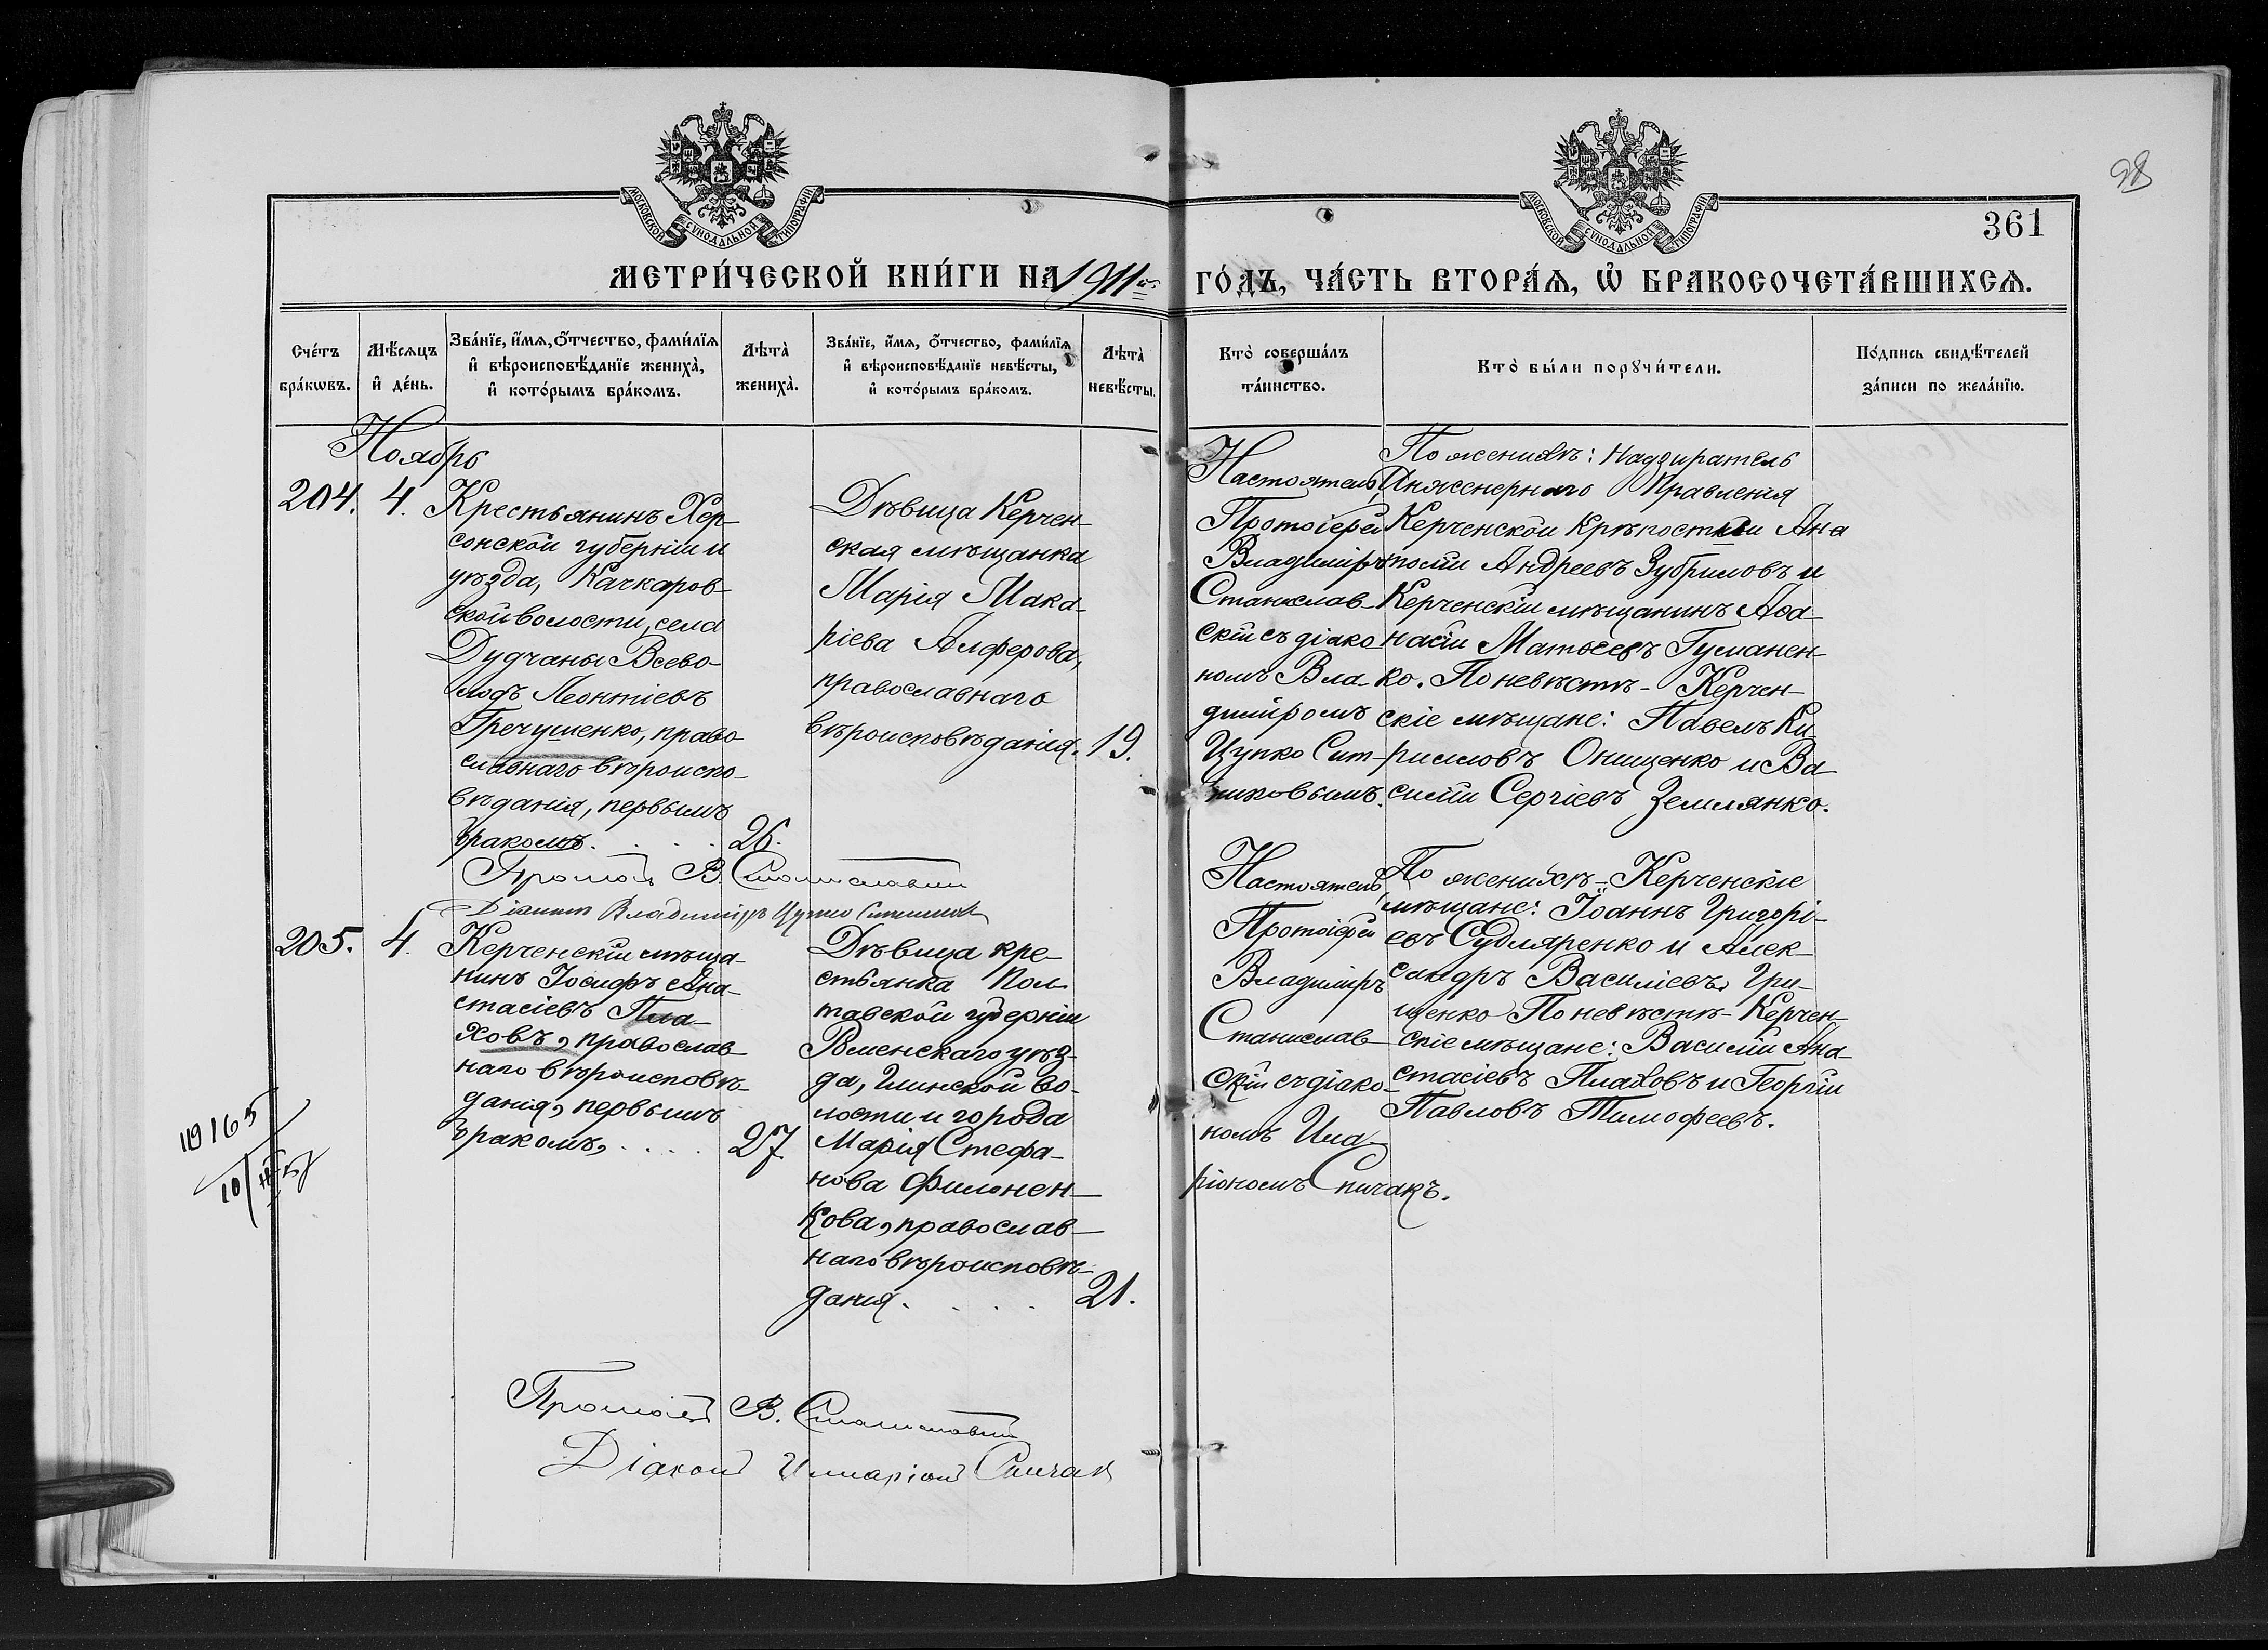 МОСКОВСКОЙ СѴНОДАЛЬНОЙ ТИПОГРАФІИ
МОСКОВСКОЙ СѴНОДАЛЬНОЙ ТИПОГРАФІИ
98
361
МЕТРИ́ЧЕСКОЙ КНИ́ГИ НА 1911й ГО́ДЪ, ЧА́СТЬ ВТОРА́Ѧ, Ѽ БРАКОСОЧЕТА́ВШИХСѦ.
Сче́тъ бра́кѡвъ.
Мѣ́сяцъ и҆ де́нь.
Зва́нїе, и҆́мѧ, ѻ҆́тчество, фами́лїѧ и҆ вѣроисповѣ́данїе жениха̀, и҆ кото́рымъ бра́комъ.
Лѣта̀ жениха̀.
Зва́нїе, и҆́мѧ, ѻ҆́тчество, фами́лїѧ и҆ вѣроисповѣ́данїе невѣ́сты, и҆ кото́рымъ бра́комъ.
Лѣта̀ невѣ́сты.
Кто̀ соверша́лъ та́инство.
Кто̀ бы́ли порꙋчи́тели.
По́дпись свидѣ́телей за́писи по жела́нїю.
Ноябрь
204.
4.
Крестьянинъ Хер-
сонской губерніи и
уѣзда, Качкаров-
ской волости, села
Дудчаны Всево-
лодъ Леонтіевъ
Гречушенко, право-
славнаго вѣроиспо-
вѣданія, первымъ
бракомъ. . . .
26.
Дѣвица Керчен-
ская мѣщанка
Марія Мака-
ріева Алферова,
православнаго
вѣроисповѣданія.
19.
Настоятель
Протоіерей
Владиміръ
Станислав-
скій съ діако-
номъ Вла-
диміромъ
Цупко Сит-
никовымъ.
По женихѣ: Надзиратель
Инженернаго Правленія
Керченской Крѣпости Ана
толій Андреевъ Зубриловъ и
Керченскій мѣщанинъ Аѳа-
насій Матѳеевъ Гуманен-
ко. По невѣстѣ - Керчен-
скіе мѣщане: Павелъ Ки-
рилловъ Онищенко и Ва-
силій Сергіевъ Землянко.
Протоіер В. Станиславскій
Діаконъ Владиміръ Цупко Ситников
205.
4.
Керченскій мѣща-
нинъ Іосифъ Ана-
стасіевъ Пла-
ховъ, православ-
наго вѣроисповѣ-
данія, первымъ
бракомъ, . . . .
27.
Дѣвица кре-
стьянка Пол-
тавской губерніи
Роменскаго уѣз-
да, Глинской во-
лости и города
Марія Стефа-
нова Филонен-
кова, православ-
наго вѣроисповѣ-
данія. . . . .
21.
Настоятель
Протоіерей
Владиміръ
Станислав-
скій съ діако-
номъ Ила-
ріономъ Спичакъ.
По женихѣ - Керченскіе
мѣщане: Іоаннъ Григорі-
евъ Судляренко и Алек-
сандръ Василіевъ Гри-
щенко По невѣстѣ - Керчен-
скіе мѣщане: Василій Ана-
стасіевъ Плаховъ и Георгій
Павловъ Тимофеевъ.
119165
10/III 57
Протоіер В. Станиславскій
Діаконъ Илларіонъ Спичак